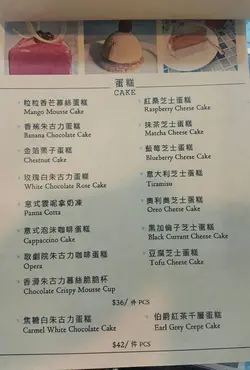 蛋糕
CAKE
粒粒香芒慕絲蛋糕
Mango Mousse Cake
香蕉朱古力蛋糕
Banana Chocolate Cake
金箔栗子蛋糕
Chestnut Cake
玫瑰白朱古力蛋糕
White Chocolate Rose Cake
意式雲呢拿奶凍
Panna Cotta
意式泡沫咖啡蛋糕
Cappuccino Cake
歌劇院朱古力咖啡蛋糕
Opera
香滑朱古力慕絲脆脆杯
Chocolate Crispy Mousse Cup
紅桑芝士蛋糕
Raspberry Cheese Cake
抹茶芝士蛋糕
Matcha Cheese Cake
藍莓芝士蛋糕
Blueberry Cheese Cake
意大利芝士蛋糕
Tiramisu
奧利奧芝士蛋糕
Oreo Cheese Cake
黑加倫子芝士蛋糕
Black Currant Cheese Cake
豆腐芝士蛋糕
Tofu Cheese Cake
$36/ 件 PCS
焦糖白朱古力蛋糕
Carmel White Chocolate Cake
伯爵紅茶千層蛋糕
Earl Grey Crepe Cake
$42/ 件 PCS